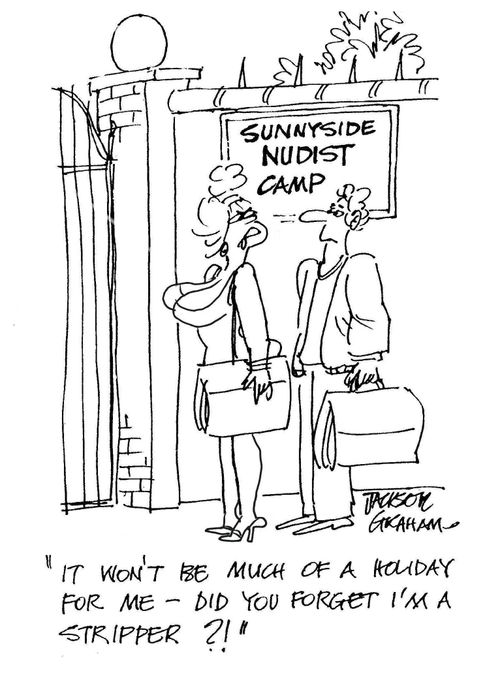 SUNNYSIDE
NUDIST
CAMP
JACKSON
GRAHAM
"IT WON'T BE MUCH OF A HOLIDAY
FOR ME – DID YOU FORGET I'M A
STRIPPER ?!"